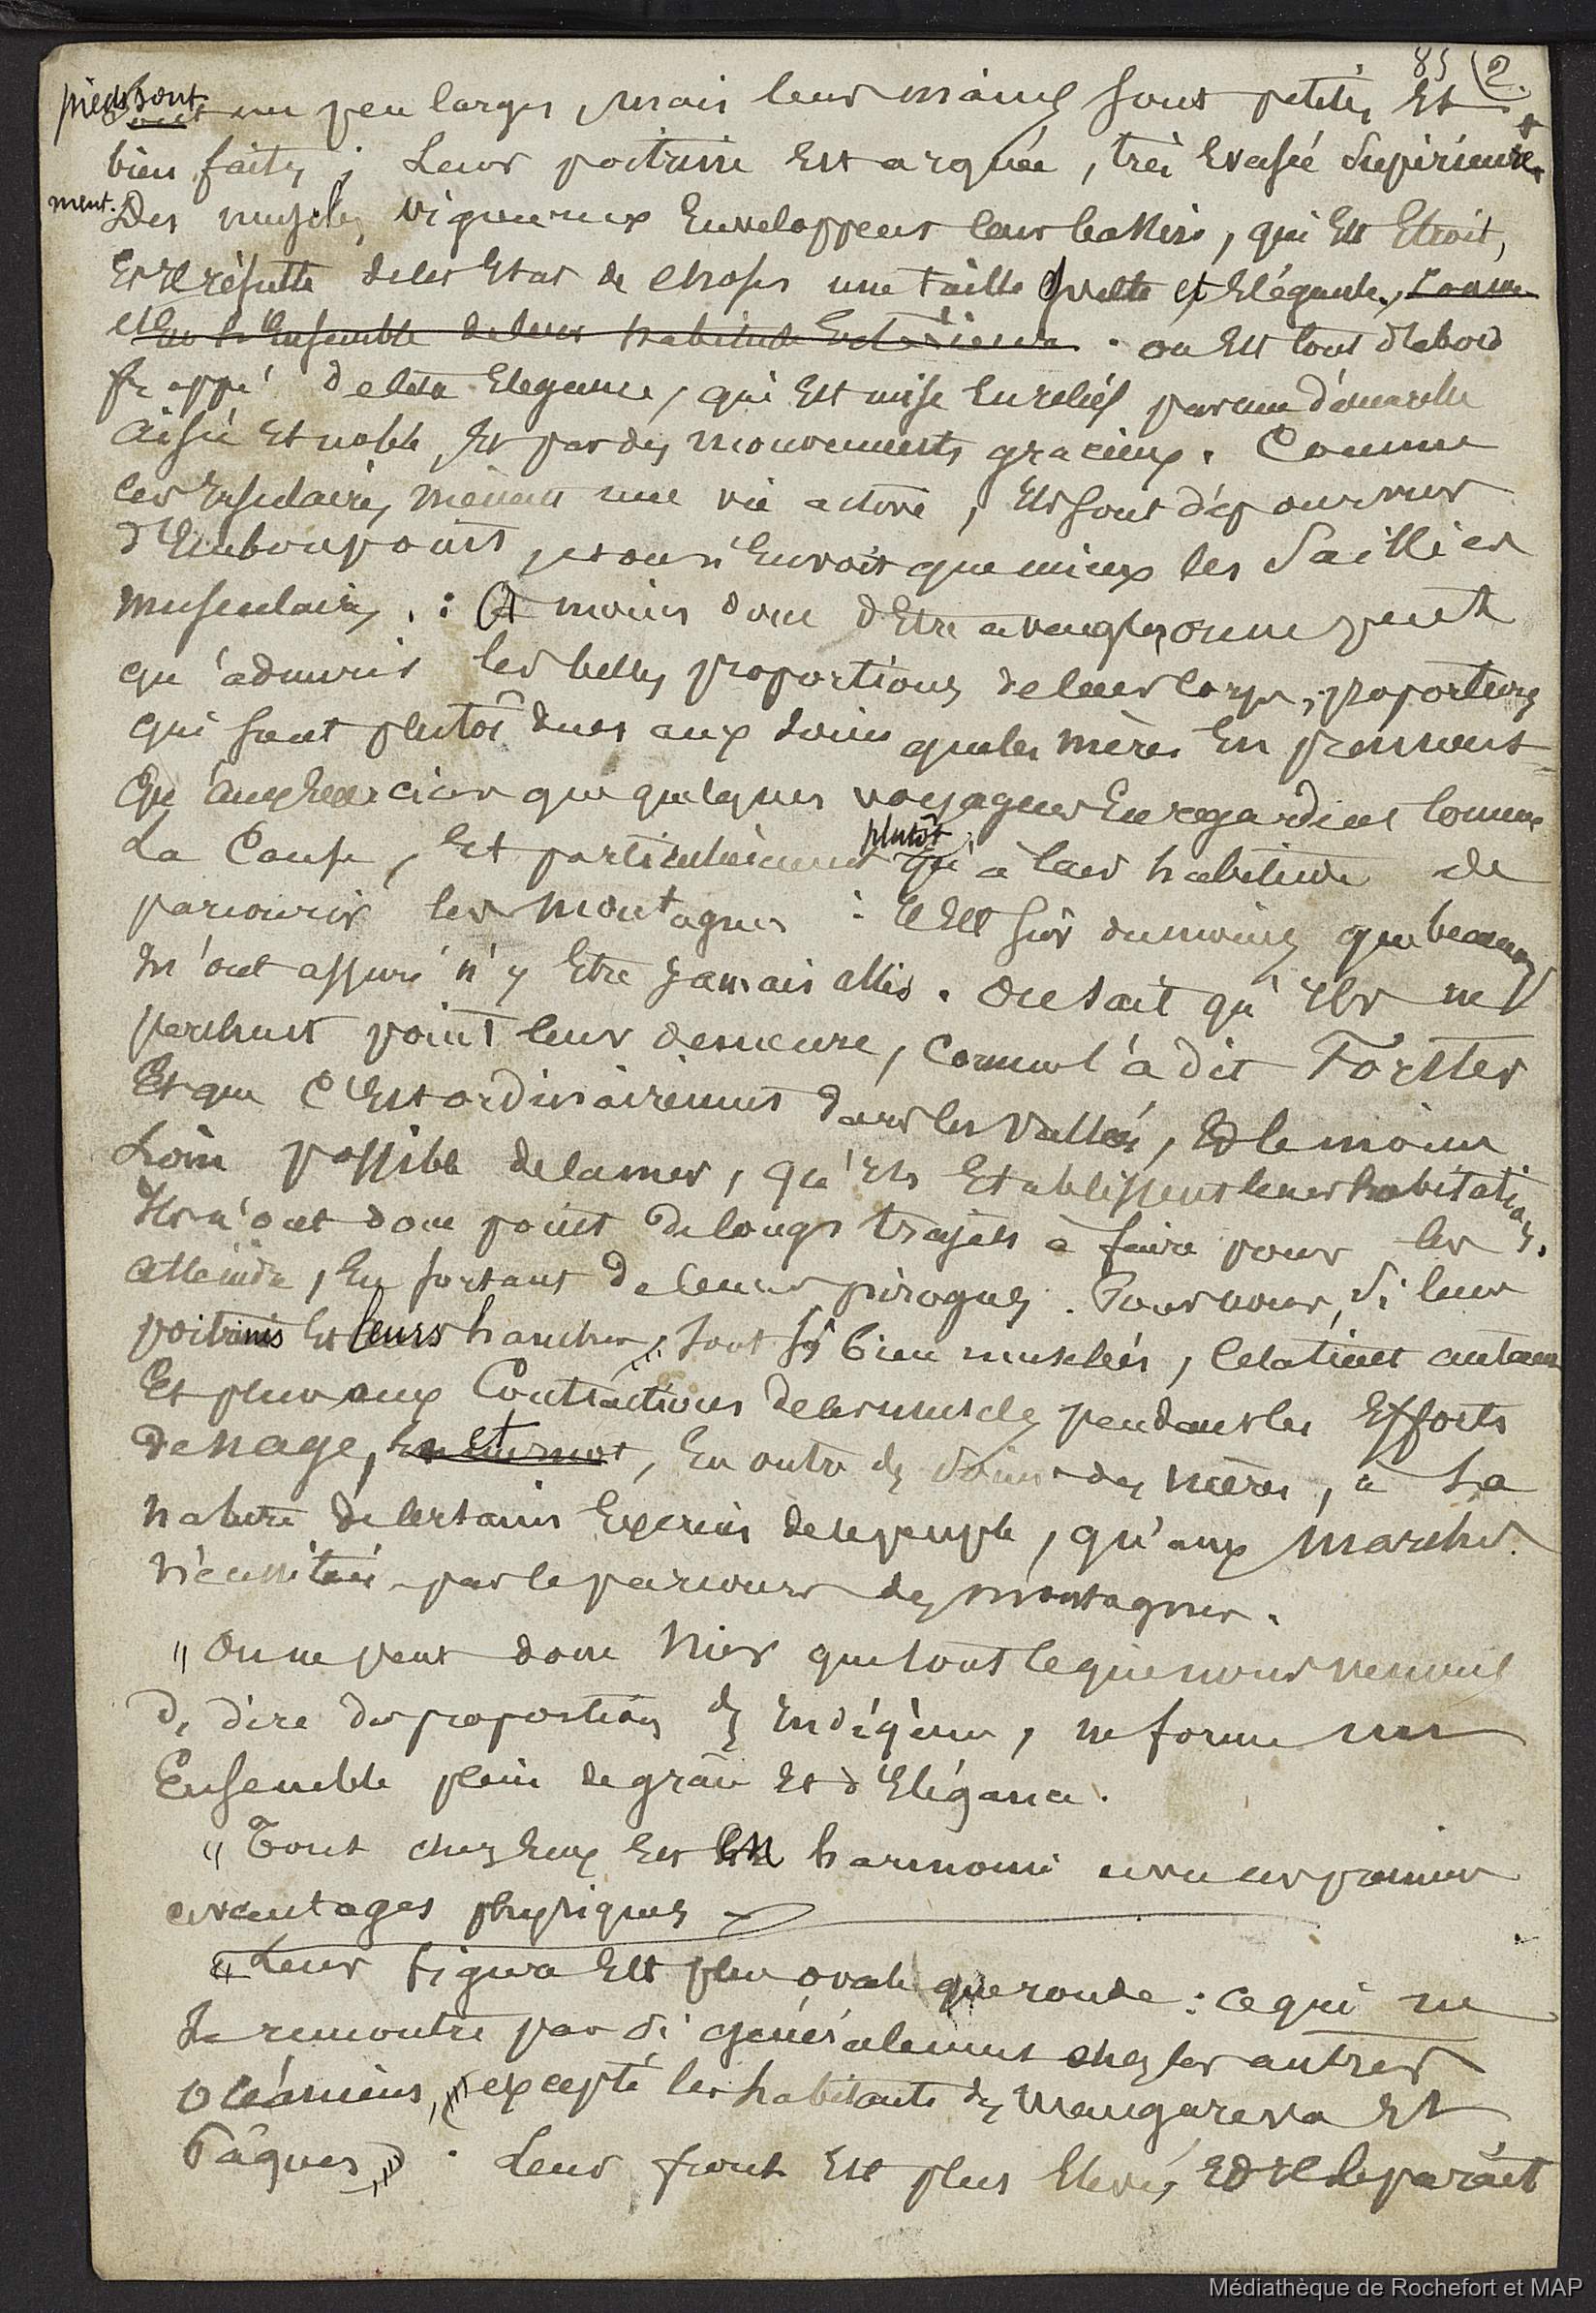 85 (2.
pieds sont un peu larges, mais leurs mains sont petites et
bien faites ; Leur poitrine est arquée, très evasée supérieure-
ment. Des muscles vigoureux enveloppent leur bassin, qui est étroit,
et il résulte de cet etat de choses une taille svelte et élégante, comme
et en l'ensemble de leur habitude extérieure. on est tout d'abord
frappé de leur élégance, qui est mise en relief par une démarche
aisée et noble et par des mouvements gracieux. Comme
ces insulaires mènent une vie active, ils sont dépourvus
d'embonpoint, et on n'en voit que mieux les saillies
musculaires. : A moins donc d'être aveugle, on ne peut
qu'admirer les belles proportions de leur corps, proportions
qui sont plutôt dues aux soins que les mères en prennent
qu'aux exercices que quelques voyageurs en regardent comme
La Cause, et particulièrement plutôt qu'à leur habitude de
parcourir les montagnes : il est sûr du moins que beaucoup
m'ont assuré n'y être jamais allés. On sait qu'ils ne
perchent point leur demeure, comme l'a dit Forster
et que c'est ordinairement dans les vallées, et le moins
Loin possible de la mer, qu'ils etablissent leurs habitations.
Ils n'ont donc point de longs trajets à faire pour les
atteindre, en sortant de leurs pirogues. Pour nous, si leurs
poitrines et leurs hanches, sont si bien musclées, cela tient autant
et plus aux Contractions de ces muscles pendant les efforts
de nage, , en outre des soins des mères, à la
nature de certains exercices de ce peuple, qu'aux marches
nécessitées par le parcours des montagnes.
"On ne peut donc nier que tout ce que nous venons
de dire des proportions des indigènes, ne forme un
Ensemble plein de grâce et d'élégance.
"Tout chez eux est en harmonie avec ces premiers
avantages physiques
"Leur figure est plus ovale que ronde : ce qui ne
se rencontre pas si généralement chez les autres
océaniens, (excepté les habitants de Mangareva et
Pâques). Leur front est plus élevé, et il le paraît
Médiathèque de Rochefort et MAP